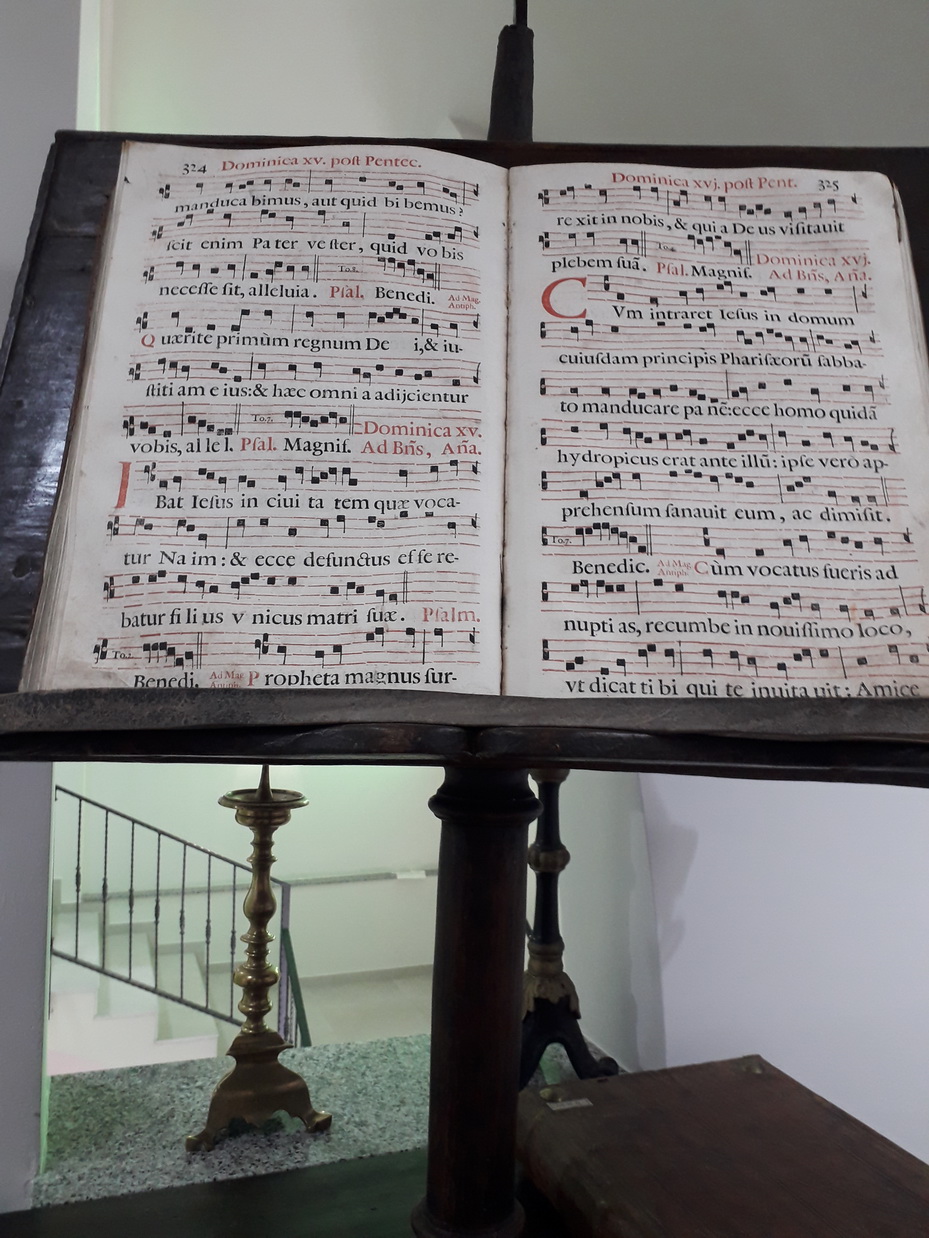 324 Dominica xv. poſt Pentec.
manduca bimus, aut quid bi bemus?
ſcit enim Pa ter ve ſter, quid vo bis
To.2.
neceſſe ſit, alleluia. Pſal. Benedi. Ad Mag. Antiph.
Quærite primùm regnum De i, & iu-
ſtiti am e ius: & hæc omni a adijcientur
To.7. Dominica xv.
vobis, al le l. Pſal. Magnif. Ad Bñs, Aña.
IBat Ieſus in ciui ta tem quæ voca-
tur Na im: & ecce defunctus eſ ſe re-
batur fi li us v nicus matri ſuæ. Pſalm.
To.2.
Benedi. Ad Mag. Antiph. Propheta magnus ſur-
Dominica xvj. poſt Pent. 325
re xit in nobis, & qui a De us viſitauit
To.4. Dominica xvj.
plebem ſuã. Pſal. Magnif. Ad Bñs, Aña.
CVm intraret Ieſus in domum
cuiuſdam principis Phariſæorũ ſabba-
to manducare pa nẽ: ecce homo quidã
hydropicus erat ante illũ: ipſe verò ap-
prehenſum ſanauit eum, ac dimiſit.
To.7.
Benedic. Ad Mag. Antiph. Cùm vocatus fueris ad
nupti as, recumbe in nouiſſimo loco,
vt dicat ti bi qui te inuita uit: Amice